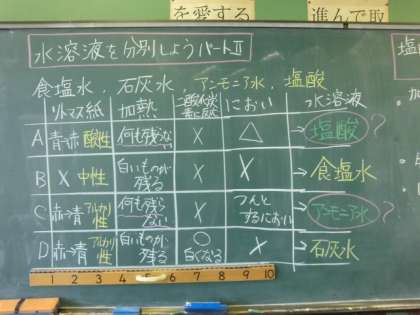 を愛する
進んで取
水溶液を分別しようパートⅡ
食塩水、石灰水、アンモニア水、塩酸
リトマス紙 加熱 二酸化炭素に反応 におい 水溶液
A 青→赤 酸性 何も残らない × △ →塩酸?
B × 中性 白いものが残る × × →食塩水
C 赤→青 アルカリ性 何も残らない × つんとするにおい →アンモニア水?
D 赤→青 アルカリ性 白いものが残る ○白くなる × →石灰水
1 2 3 4 5 6 7 8 9 10